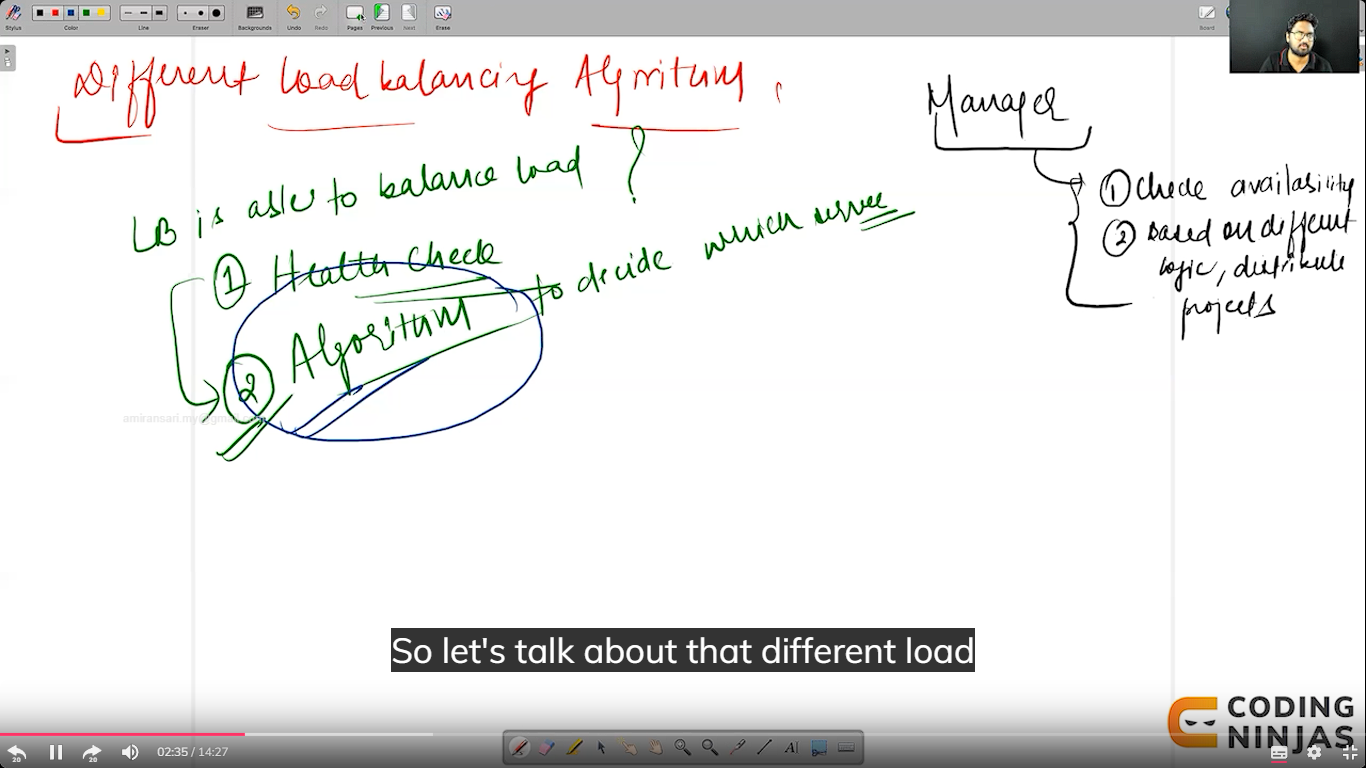 Stylus
Color
Line
Eraser
Backgrounds
Undo
Redo
Pages
Previous
Next
Erase
Board
Different Load balancing Algoritum
LB is able to balance load ?
① Health Check
② Algoritum to decide which server
Manager
① Check availability
② Based on different
logic, distribute
projects
amiransari.my@gmail.com
So let's talk about that different load
CODING
NINJAS
20
20
02:35 / 14:27